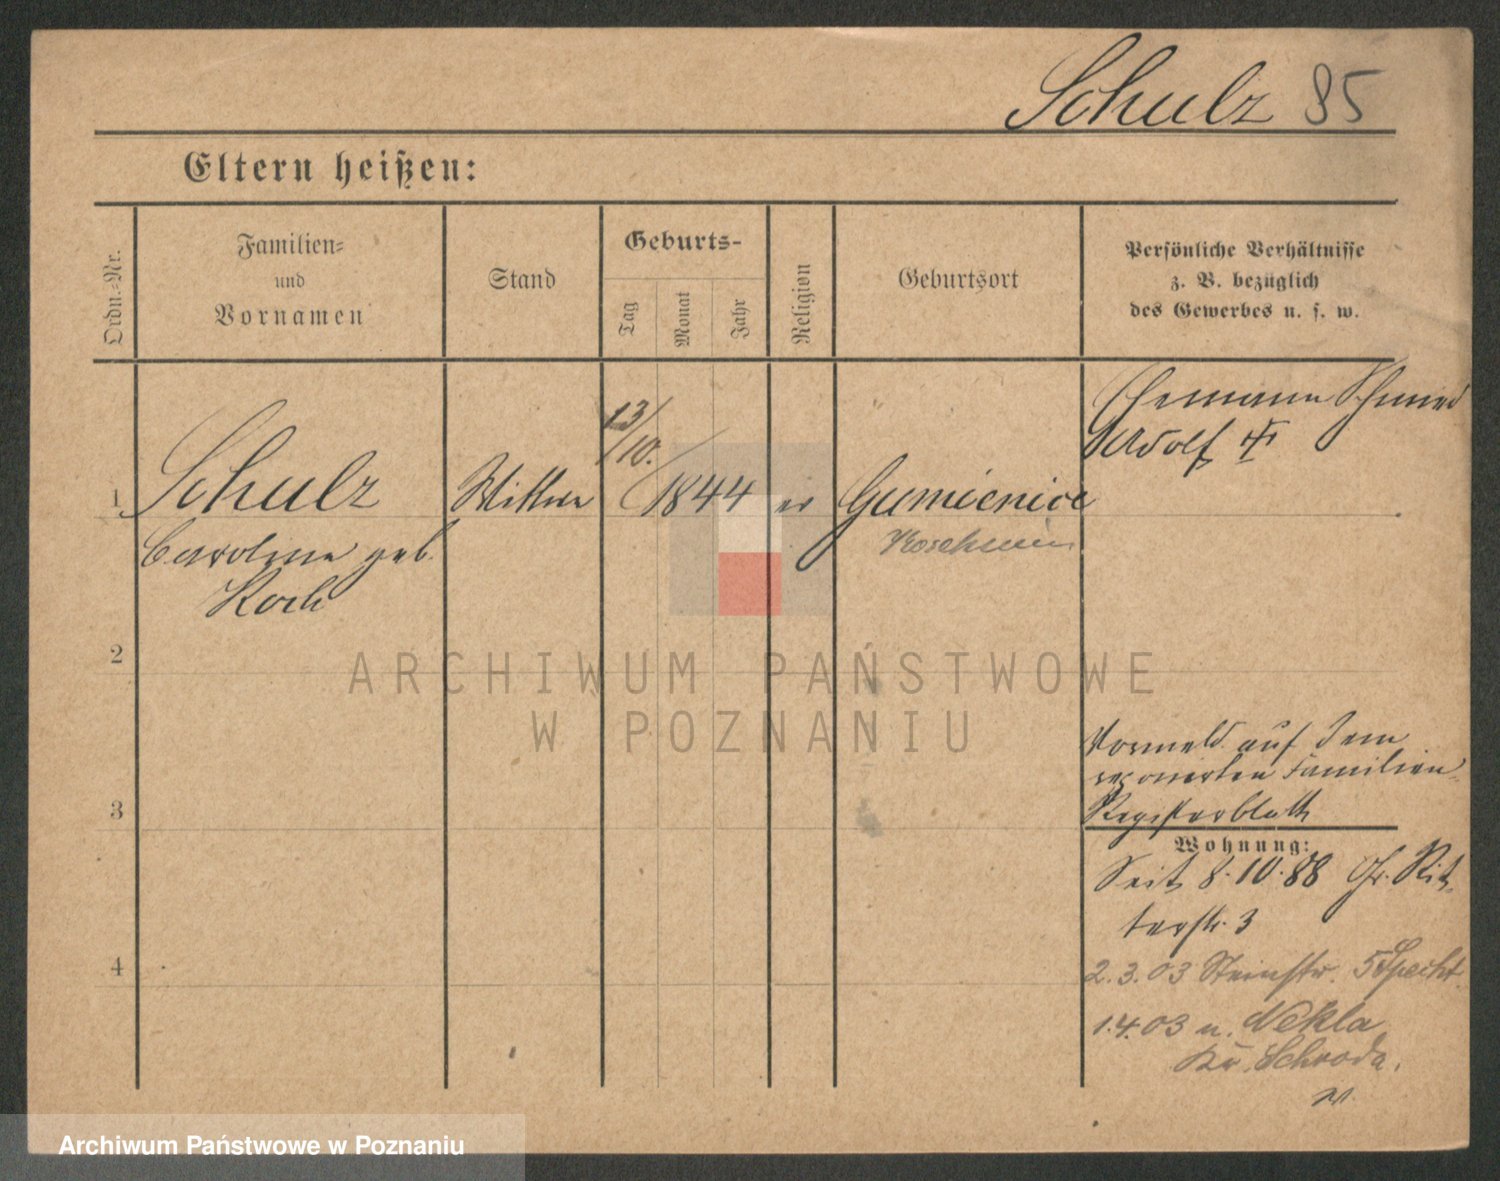 Schulz 85
Eltern heißen:
Ordn.-Nr.
Familien-
und
Vornamen
Stand
Geburts-
Tag
Monat
Jahr
Religion
Geburtsort
Persönliche Verhältnisse
z. B. bezüglich
des Gewerbes u. s. w.
Ehemann Schmied
Adolf
13/
/10.
1 Schulz Wittwe 1844 ev Gumienice
Caroline geb.
Koch
Koschmin
2
ARCHIWUM PAŃSTWOWE
W POZNANIU
Vormeld. auf dem
reponirten Familien-
Registerblatt
3
Wohnung:
Seit 8.10.88 Gr. Rit-
terstr. 3
4
2.3.03 Steinstr. 5 Specht.
1.4.03 n. Nekla
Kr. Schroda.
Archiwum Państwowe w Poznaniu